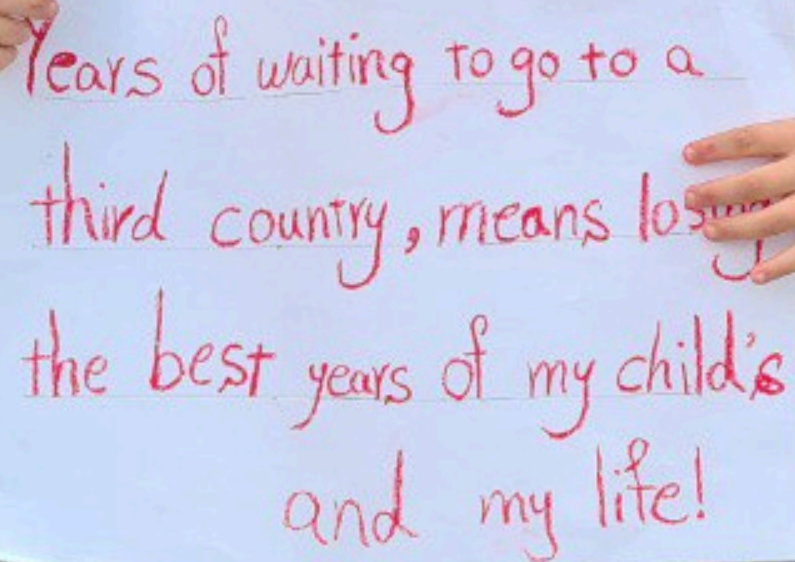 Years of waiting to go to a
third country, means losing
the best years of my child's
and my life!